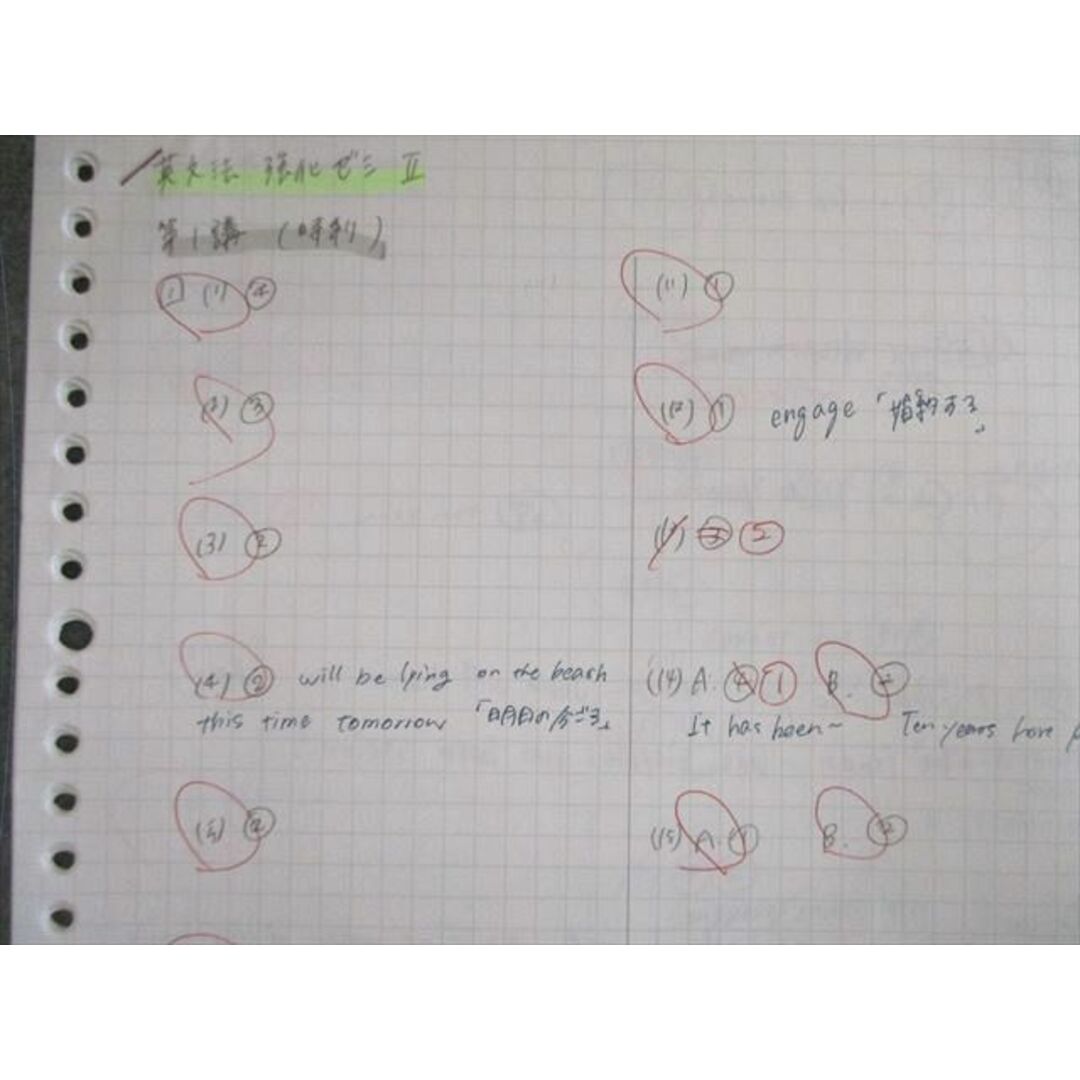 英文法 強化ゼミ Ⅱ
第1講 (時制)
1 (1) ④
(2) ③
(3) ②
(4) ② will be lying on the beach
this time tomorrow 「明日の今ごろ」
(5) ②
(11) ①
(12) ① engage 「婚約する」
(13) ③ ②
(14) A. ④ ① B.
It has been~ Ten years have
(15) A. ① B.